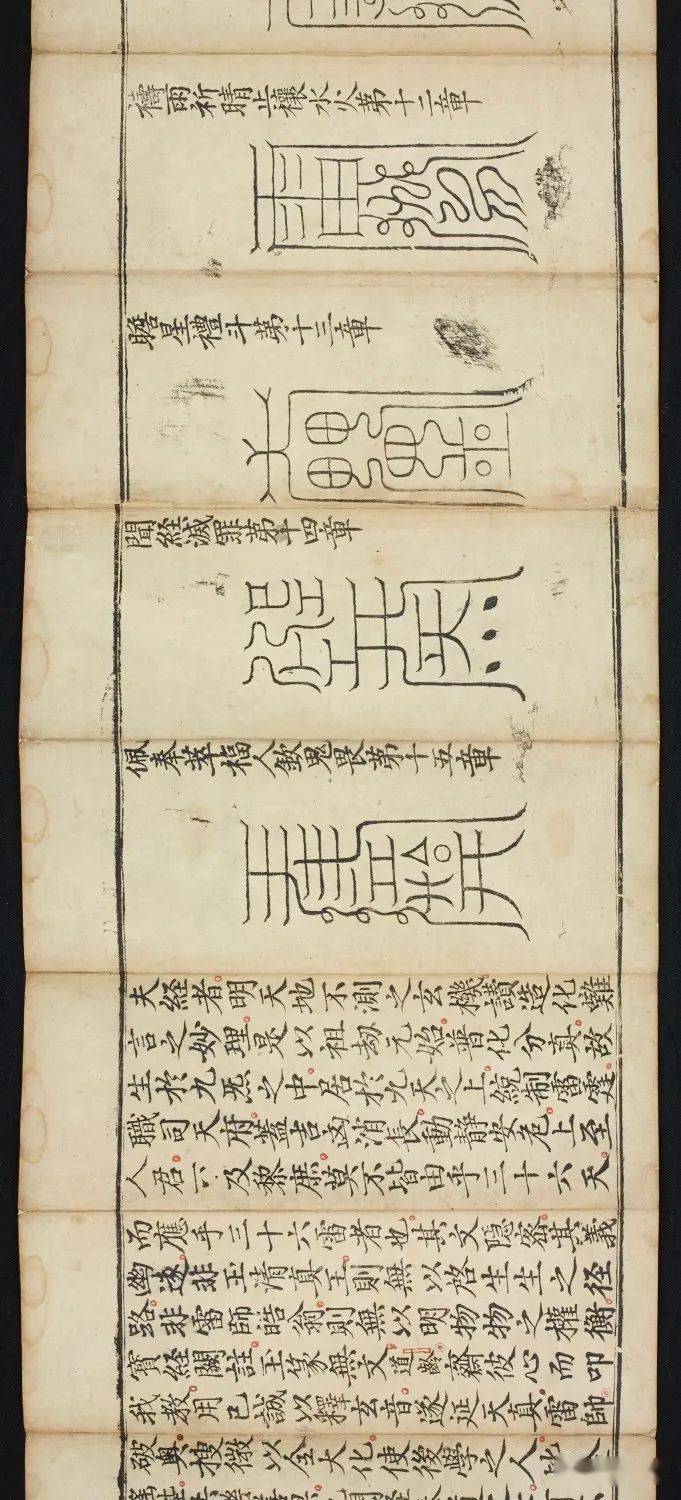 禱雨祈晴止禳水火第十二章
瞻星禮斗第十三章
聞経滅罪第十四章
佩奉萃福人欽鬼畏第十五章
夫経者明天地不測之玄機讃造化難
言之妙理是以祖劫元始普化分真故
生於九炁之中居於九天之上綂制雷霆
職司天府葢吉凶消長動靜安危上至
人君下及黎庶莫不皆由乎三十六天
而應乎三十六雷者也其文隠密其義
幽邃非玉清真王則無以啓生生之徑
路非雷師皓翁則無以明物物之權衡
寳経闕註玉篆無文道齡齋彼心而叩
我教用已誠以釋玄音遂延天真雷師
破奥搜微以全大化使後學之人